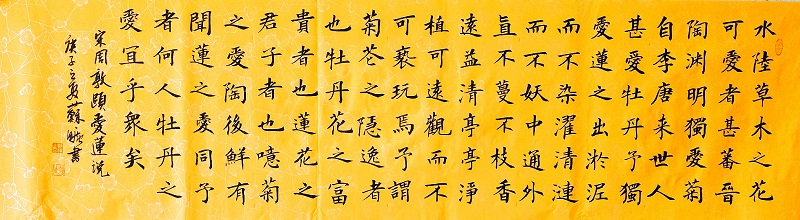 水陸草木之花
可愛者甚蕃晉
陶渊明獨愛菊
自李唐来世人
甚愛牡丹予獨
愛蓮之出淤泥
而不染濯清漣
而不妖中通外
直不蔓不枝香
遠益清亭亭淨
植可遠觀而不
可褻玩焉予謂
菊花之隱逸者
也牡丹花之富
貴者也蓮花之
君子者也噫菊
之愛陶後鮮有
聞蓮之愛同予
者何人牡丹之
愛宜乎眾矣
宋周敦頤愛蓮说
庚子之夏蘇書